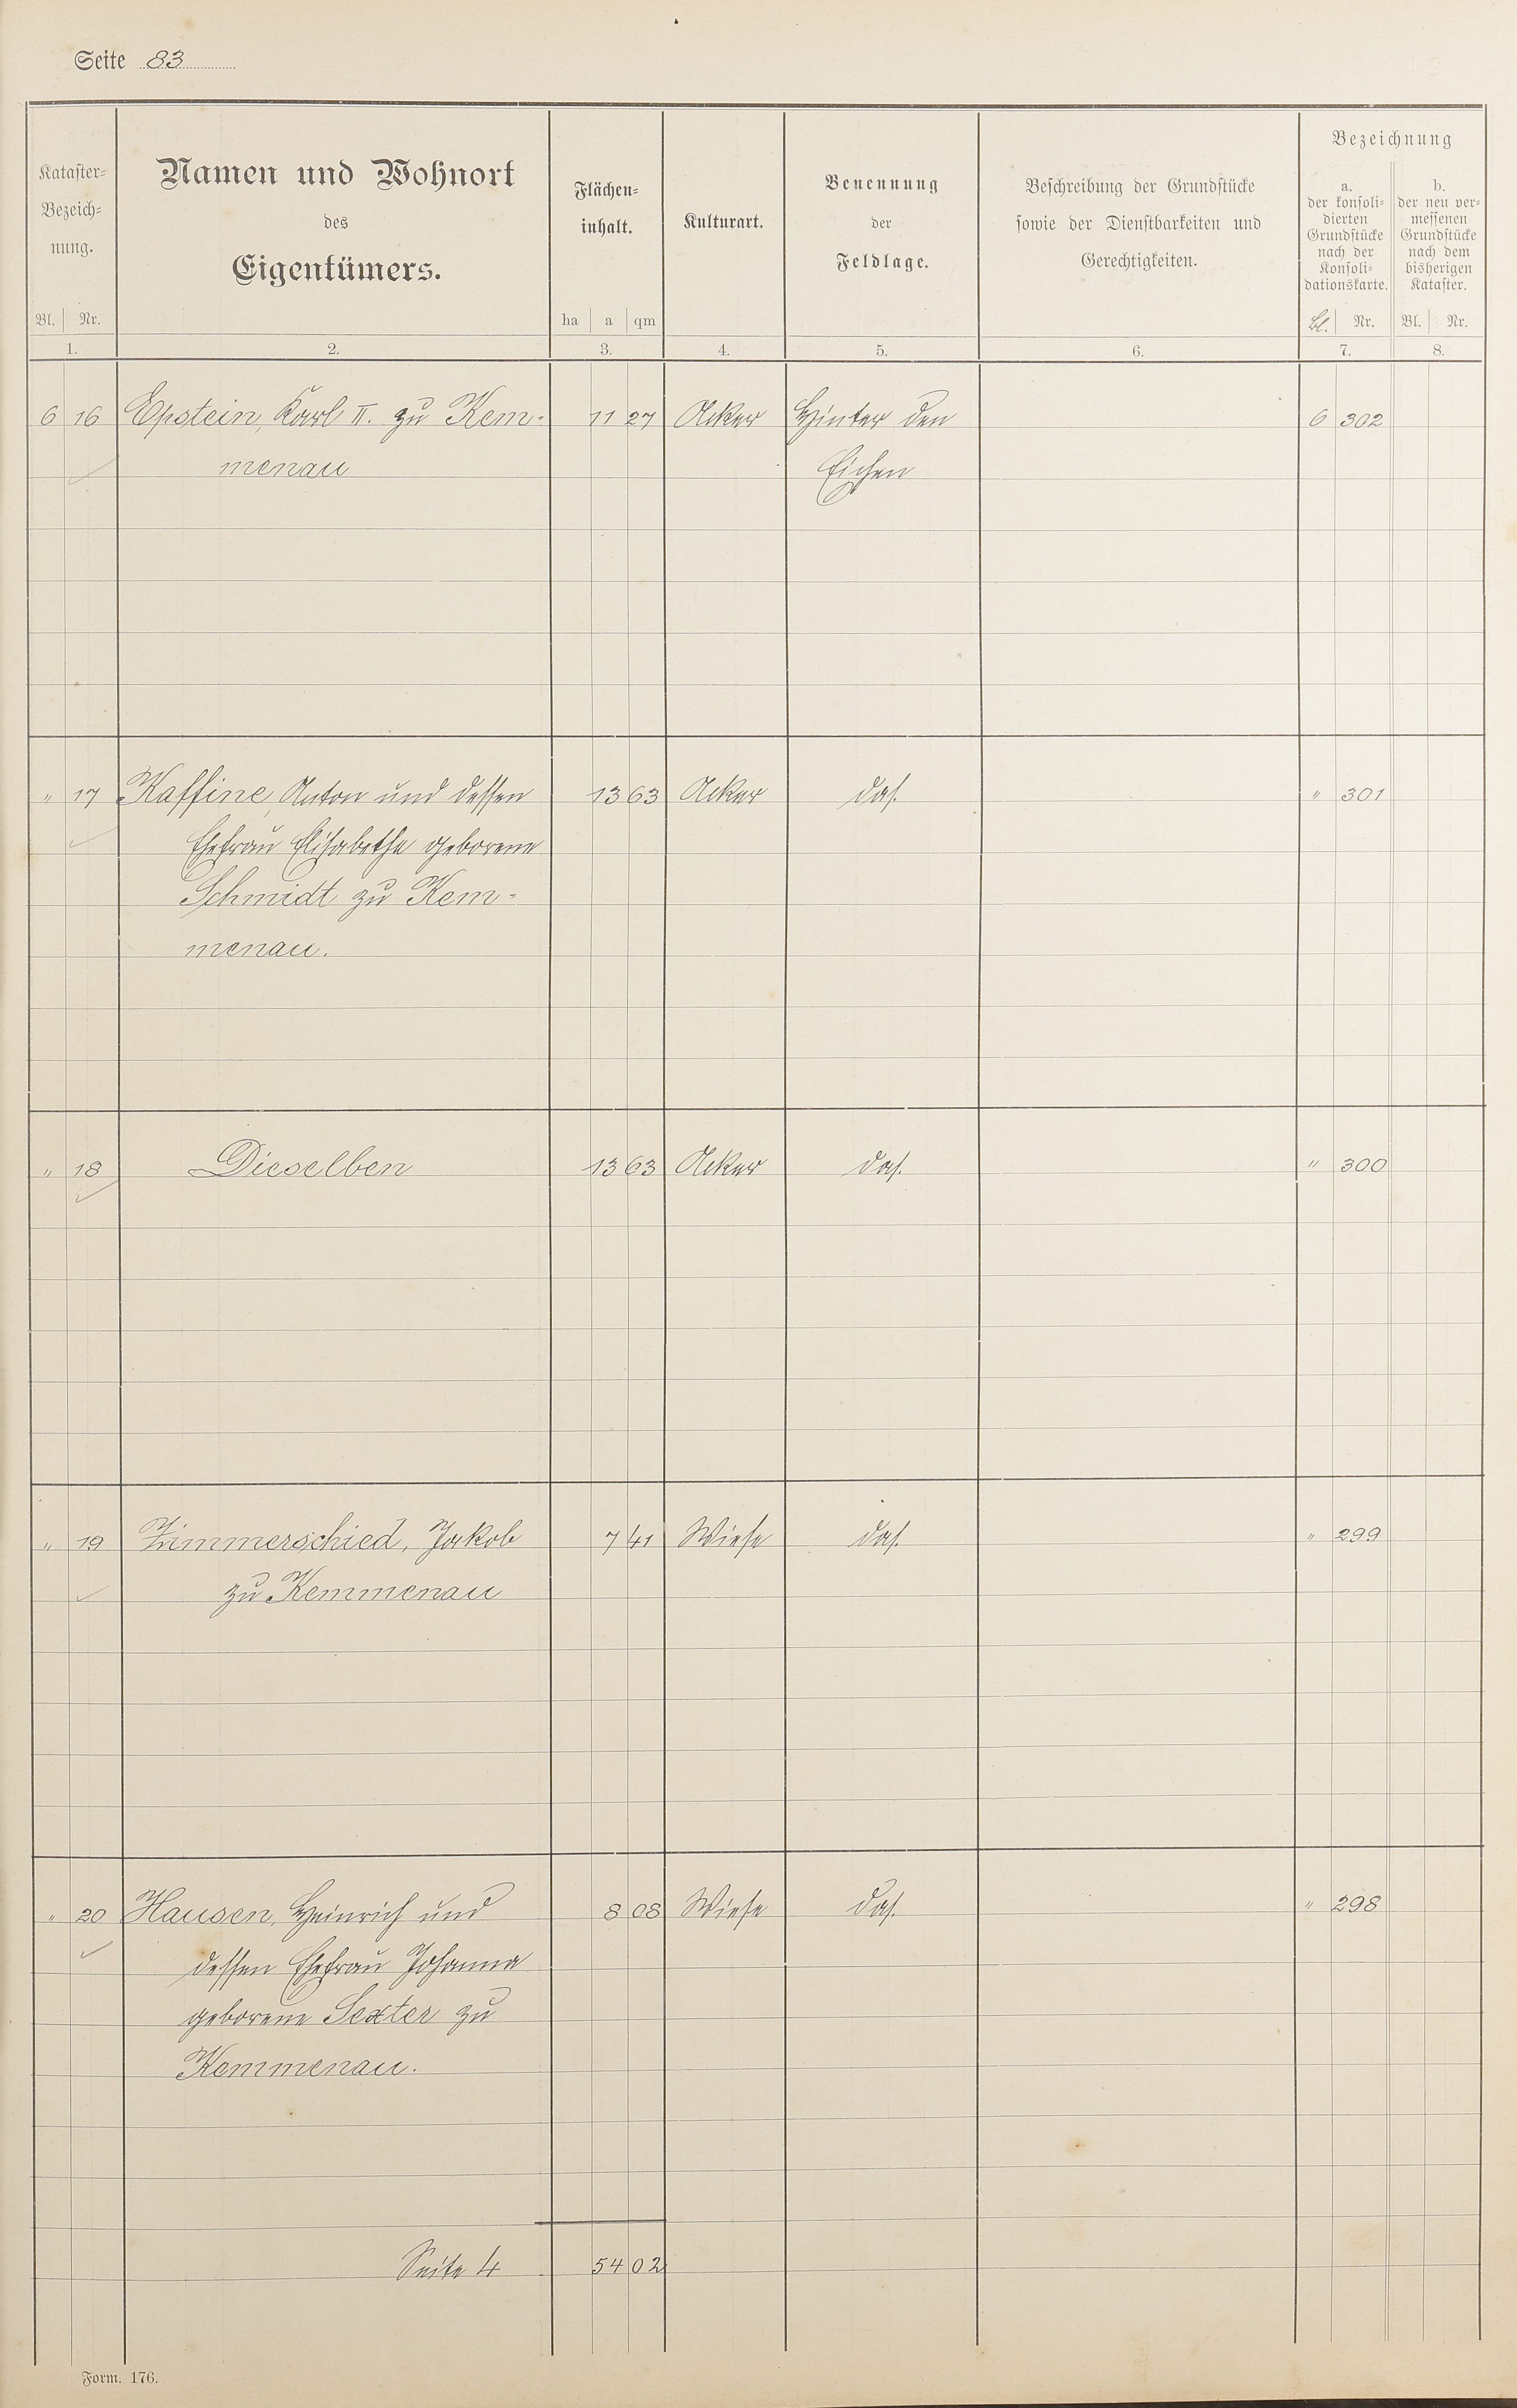 Seite 83
Kataster-
Bezeich-
nung.
Bl. Nr.
1.
Namen und Wohnort
des
Eigentümers.
2.
Flächen-
inhalt.
ha a qm
3.
Kulturart.
4.
Benennung
der
Feldlage.
5.
Beschreibung der Grundstücke
sowie der Dienstbarkeiten und
Gerechtigkeiten.
6.
Bezeichnung
a.
der konsoli-
dierten
Grundstücke
nach der
Konsoli-
dationskarte.
Bl. Nr.
7.
b.
der neu ver-
messenen
Grundstücke
nach dem
bisherigen
Kataster.
Bl. Nr.
8.
6 16 Epstein, Karl II. zu Kem- 11 27 Acker Hinter den 6 302
menau Eichen
" 17 Kaffine, Anton und dessen 13 63 Acker das. " 301
Ehefrau Elisabethe geborene
Schmidt zu Kem-
menau.
" 18 Dieselben 13 63 Acker das. " 300
" 19 Zimmerschied, Jakob 7 41 Wiese das. " 299
zu Kemmenau
" 20 Hausen, Heinrich und 8 08 Wiese das. " 298
dessen Ehefrau Johanna
geborene Sexter zu
Kemmenau.
Seite 4 54 02
Form. 176.